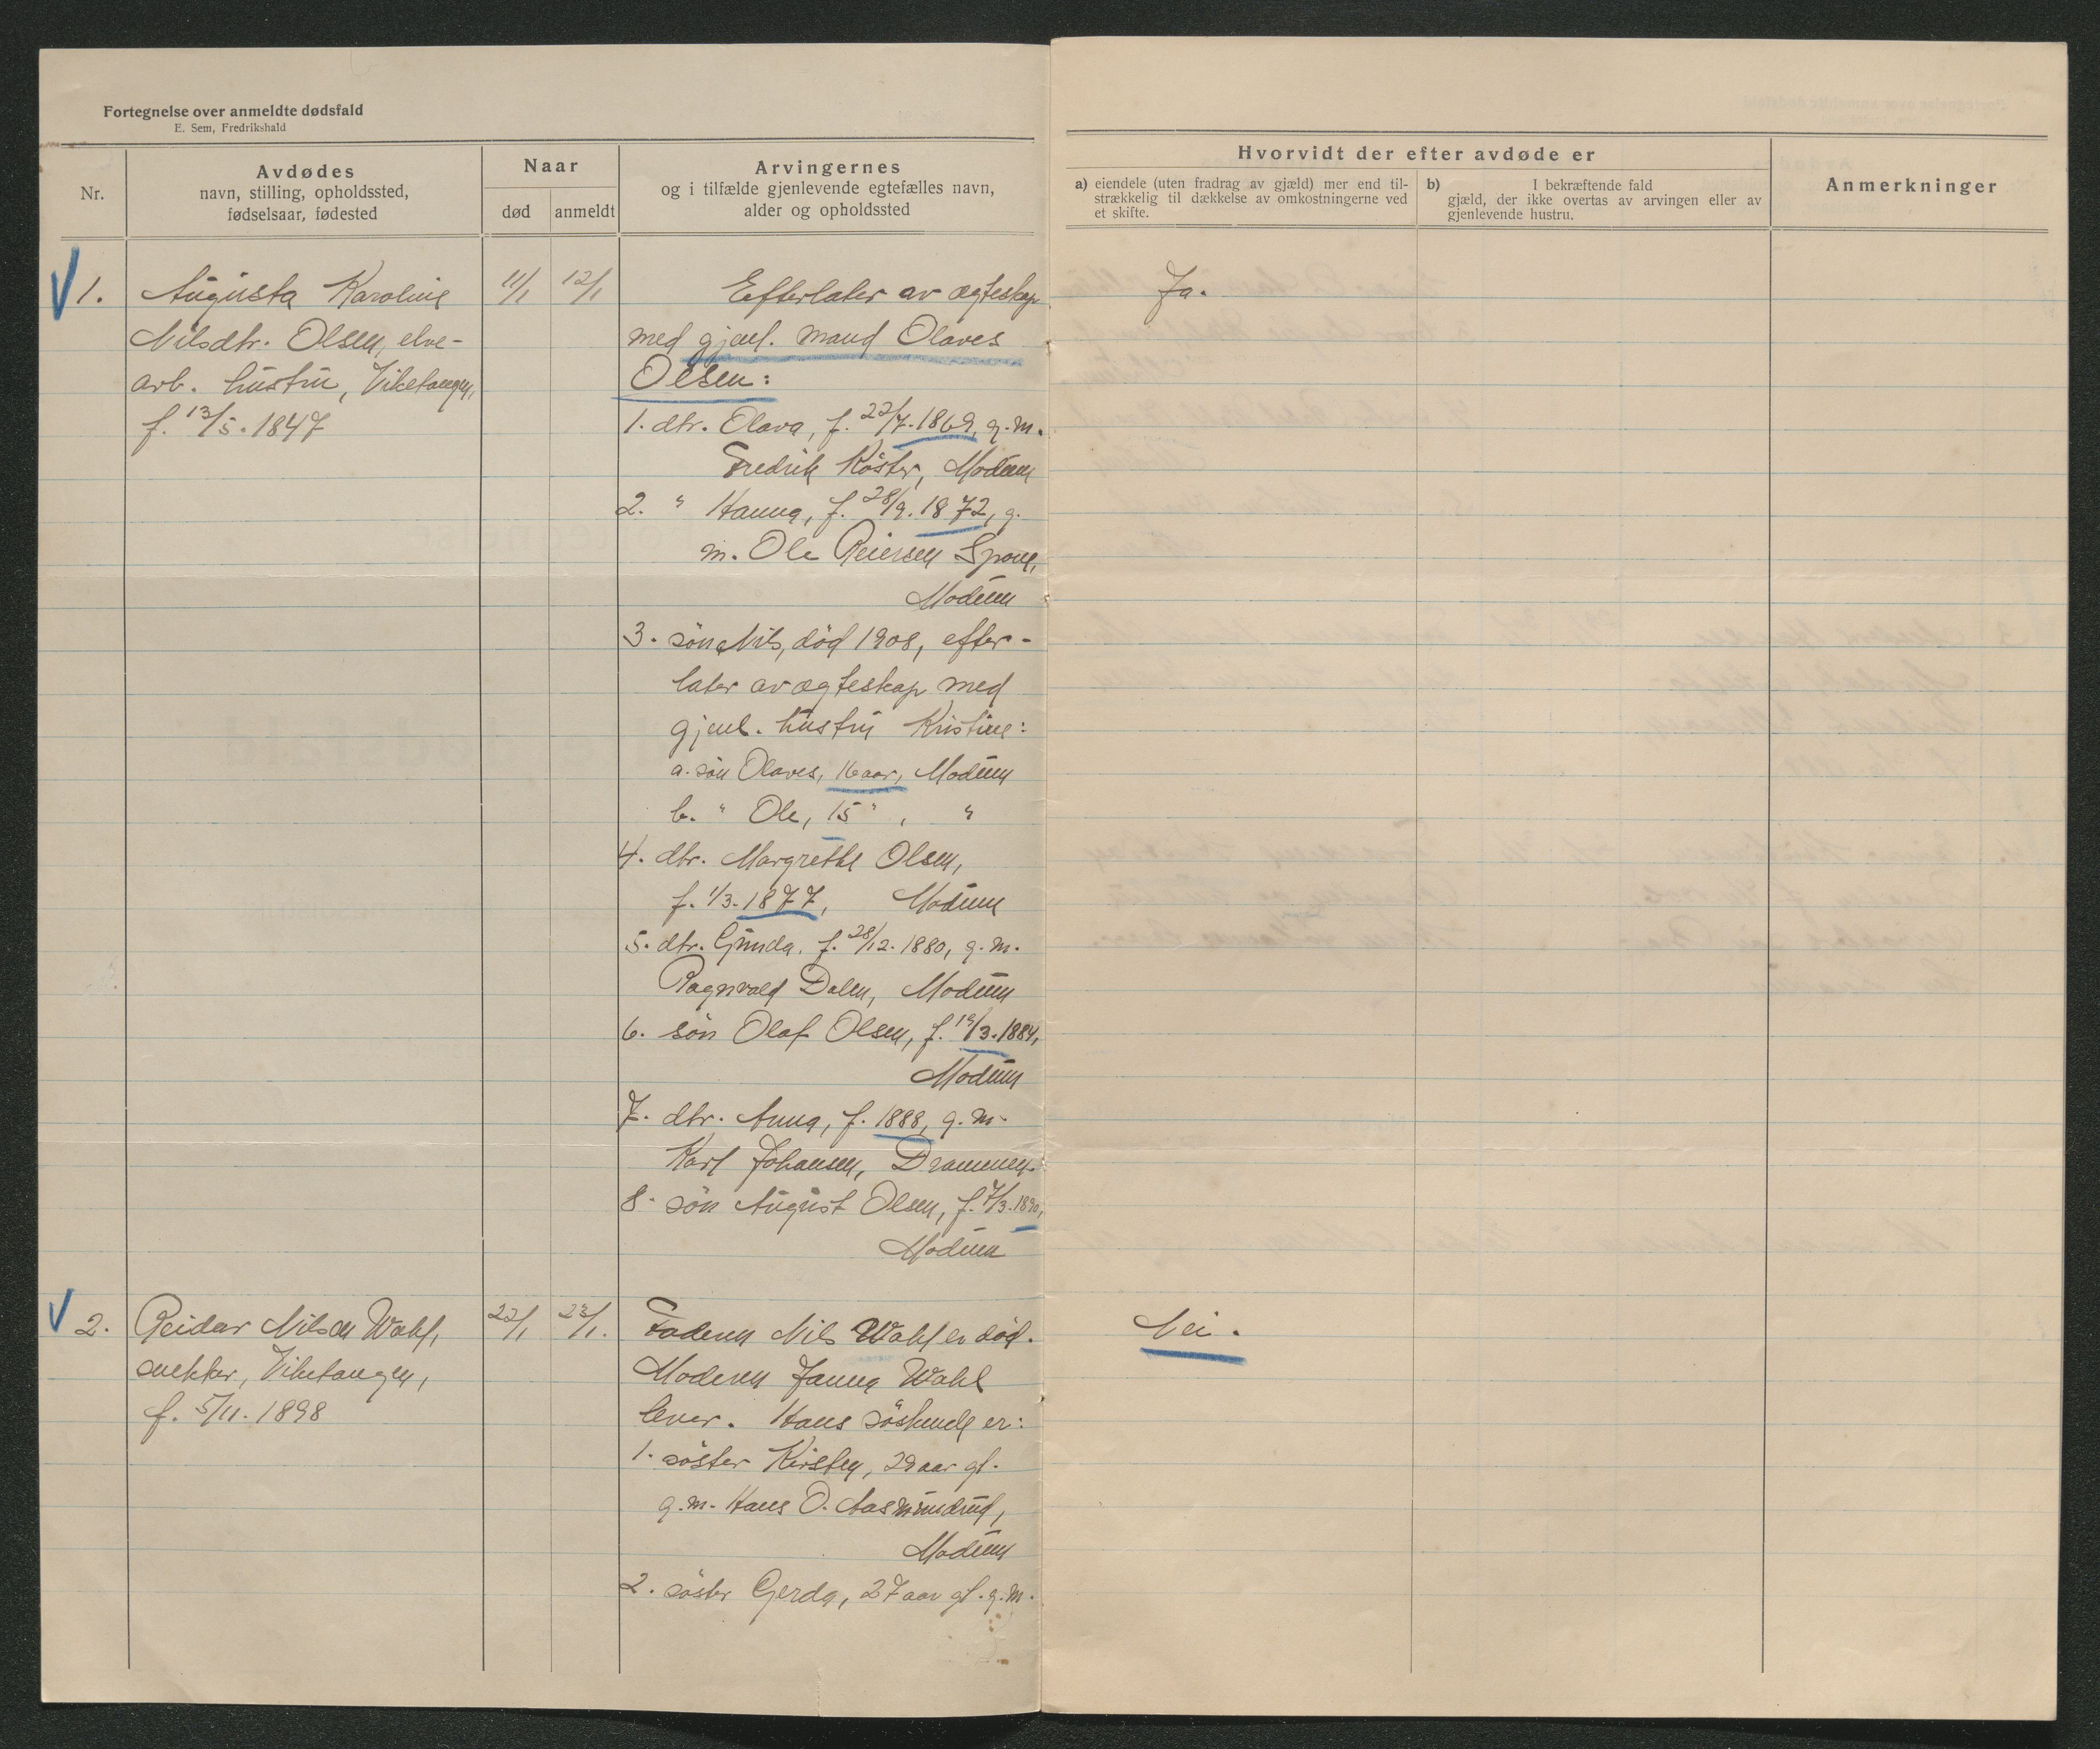 Fortegnelse over anmeldte dødsfald
E. Sem, Fredrikshald
Nr.
Avdødes
navn, stilling, opholdssted,
fødselsaar, fødested
Naar
død
anmeldt
Arvingernes
og i tilfælde gjenlevende egtefælles navn,
alder og opholdssted
Hvorvidt der efter avdøde er
a) eiendele (uten fradrag av gjæld) mer end til-
strækkelig til dækkelse av omkostningerne ved
et skifte.
b) I bekræftende fald
gjæld, der ikke overtas av arvingen eller av
gjenlevende hustru.
Anmerkninger
1.
Augusta Karoline
Nilsdtr. Olsen, elve-
arb. hustru, Viketangen,
f. 13/5. 1847
11/1
12/1
Efterlater av ægteskap
med gjenl. mand Olaves
Olsen:
1. dtr. Olava, f. 22/7. 1869, g. m.
Fredrik Köster, Modum
2. " Hanna, f. 28/9. 1872, g.
m. Ole Reiersen Spone,
Modum
3. søn Nils, død 1908, efter-
later av ægteskap med
gjenl. hustru Kristine:
a. søn Olaves, 16 aar, Modum
b. " Ole, 15 " , "
4. dtr. Margrethe Olsen,
f. 1/3. 1877, Modum
5. dtr. Gunda, f. 28/12. 1880, g. m.
Ragnvald Dalen, Modum
6. søn Olaf Olsen, f. 19/3. 1884,
Modum
7. dtr. Anna, f. 1888, g. m.
Karl Johansen, Drammen.
8. søn August Olsen, f. 7/3. 1890,
Modum
Ja.
2.
Reidar Nilsen Wahl,
snekker, Viketangen,
f. 5/11. 1898
22/1
23/1.
Faderen Nils Wahl er død.
Moderen Janna Wahl
lever. Hans søskende er:
1. søster Kirsten, 29 aar gl.
g. m. Hans O. Aasmundrud,
Modum
2. søster Gerda, 27 aar gl. g. m.
Nei.